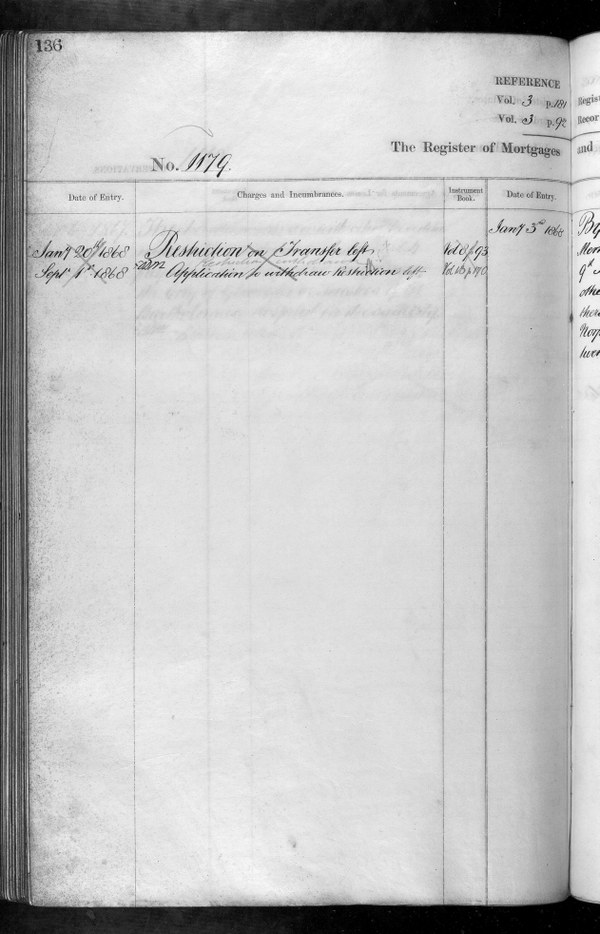 136
REFERENCE
Vol. 3 p. 181
Vol. 3 p. 92
The Register of Mortgages
No. 1179.
Date of Entry.
Charges and Incumbrances.
Instrument Book.
Date of Entry.
Jany 3rd 1868
Jany 20th 1868 Restriction on Transfer left Vol 8 p. 93
Septr 1st 1868 Application to withdraw Restriction left
Regist
Recor
and
Mort
9th
othe
twen